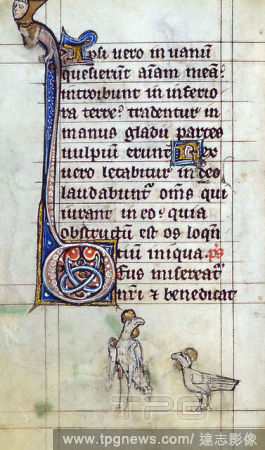 Ipsi vero in vanū
quesierūt aīam meā:
introibunt in inferio
ra terre: tradentur in
manus gladii partes
vulpium erunt Rex
vero letabitur in deo
laudabuntʳ om̄s qui
iurant in eo: quia
obstructum est os loqn̄
tium iniqua. ps
Eus misereatʳ
nr̄i ⁊ benedicat
TPG
www.tpgnews.com / 達志影像